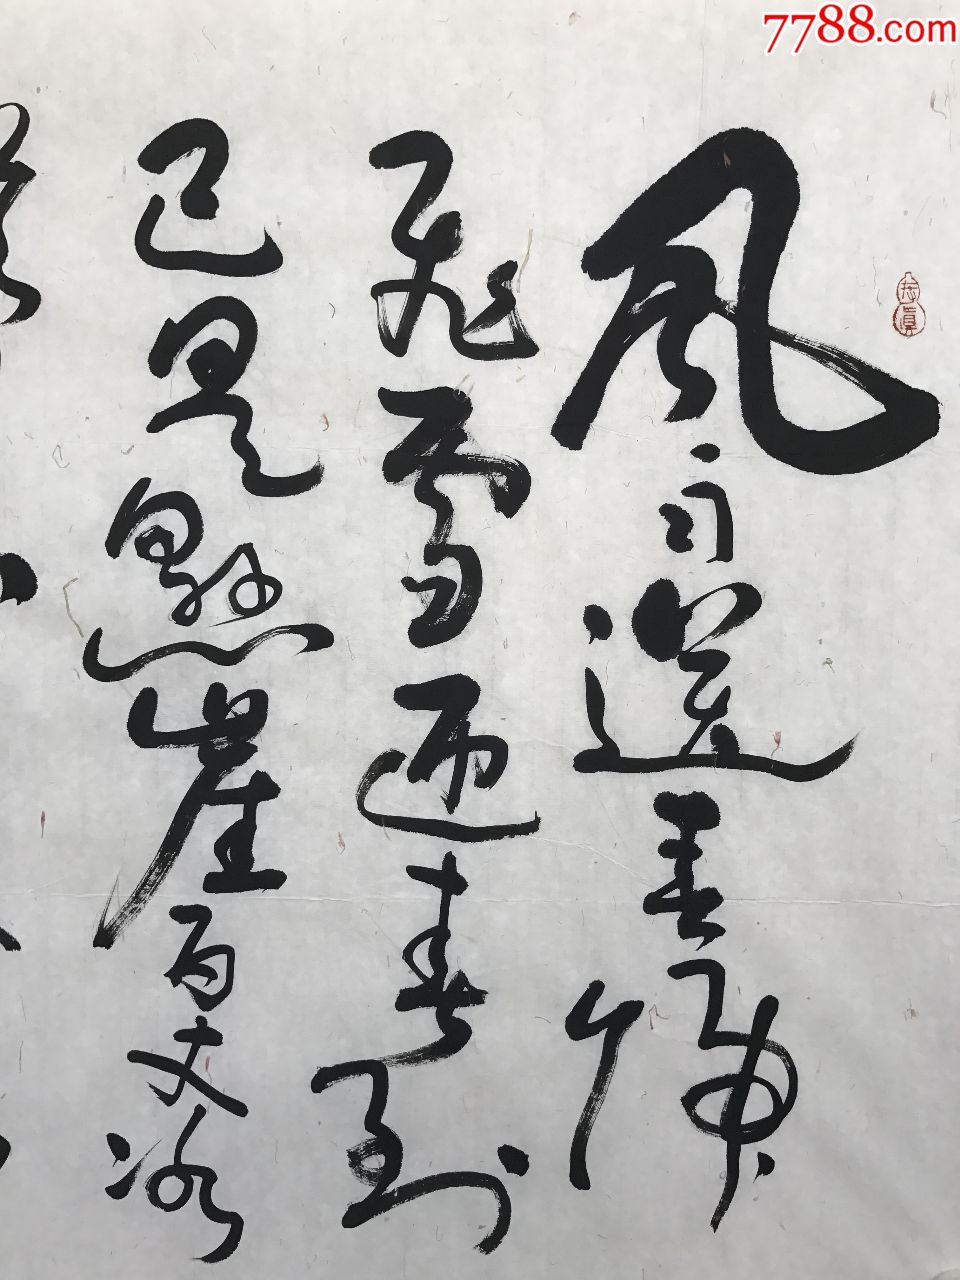 7788.com
風雨送春歸
飛雪迎春到
已是懸崖百丈冰